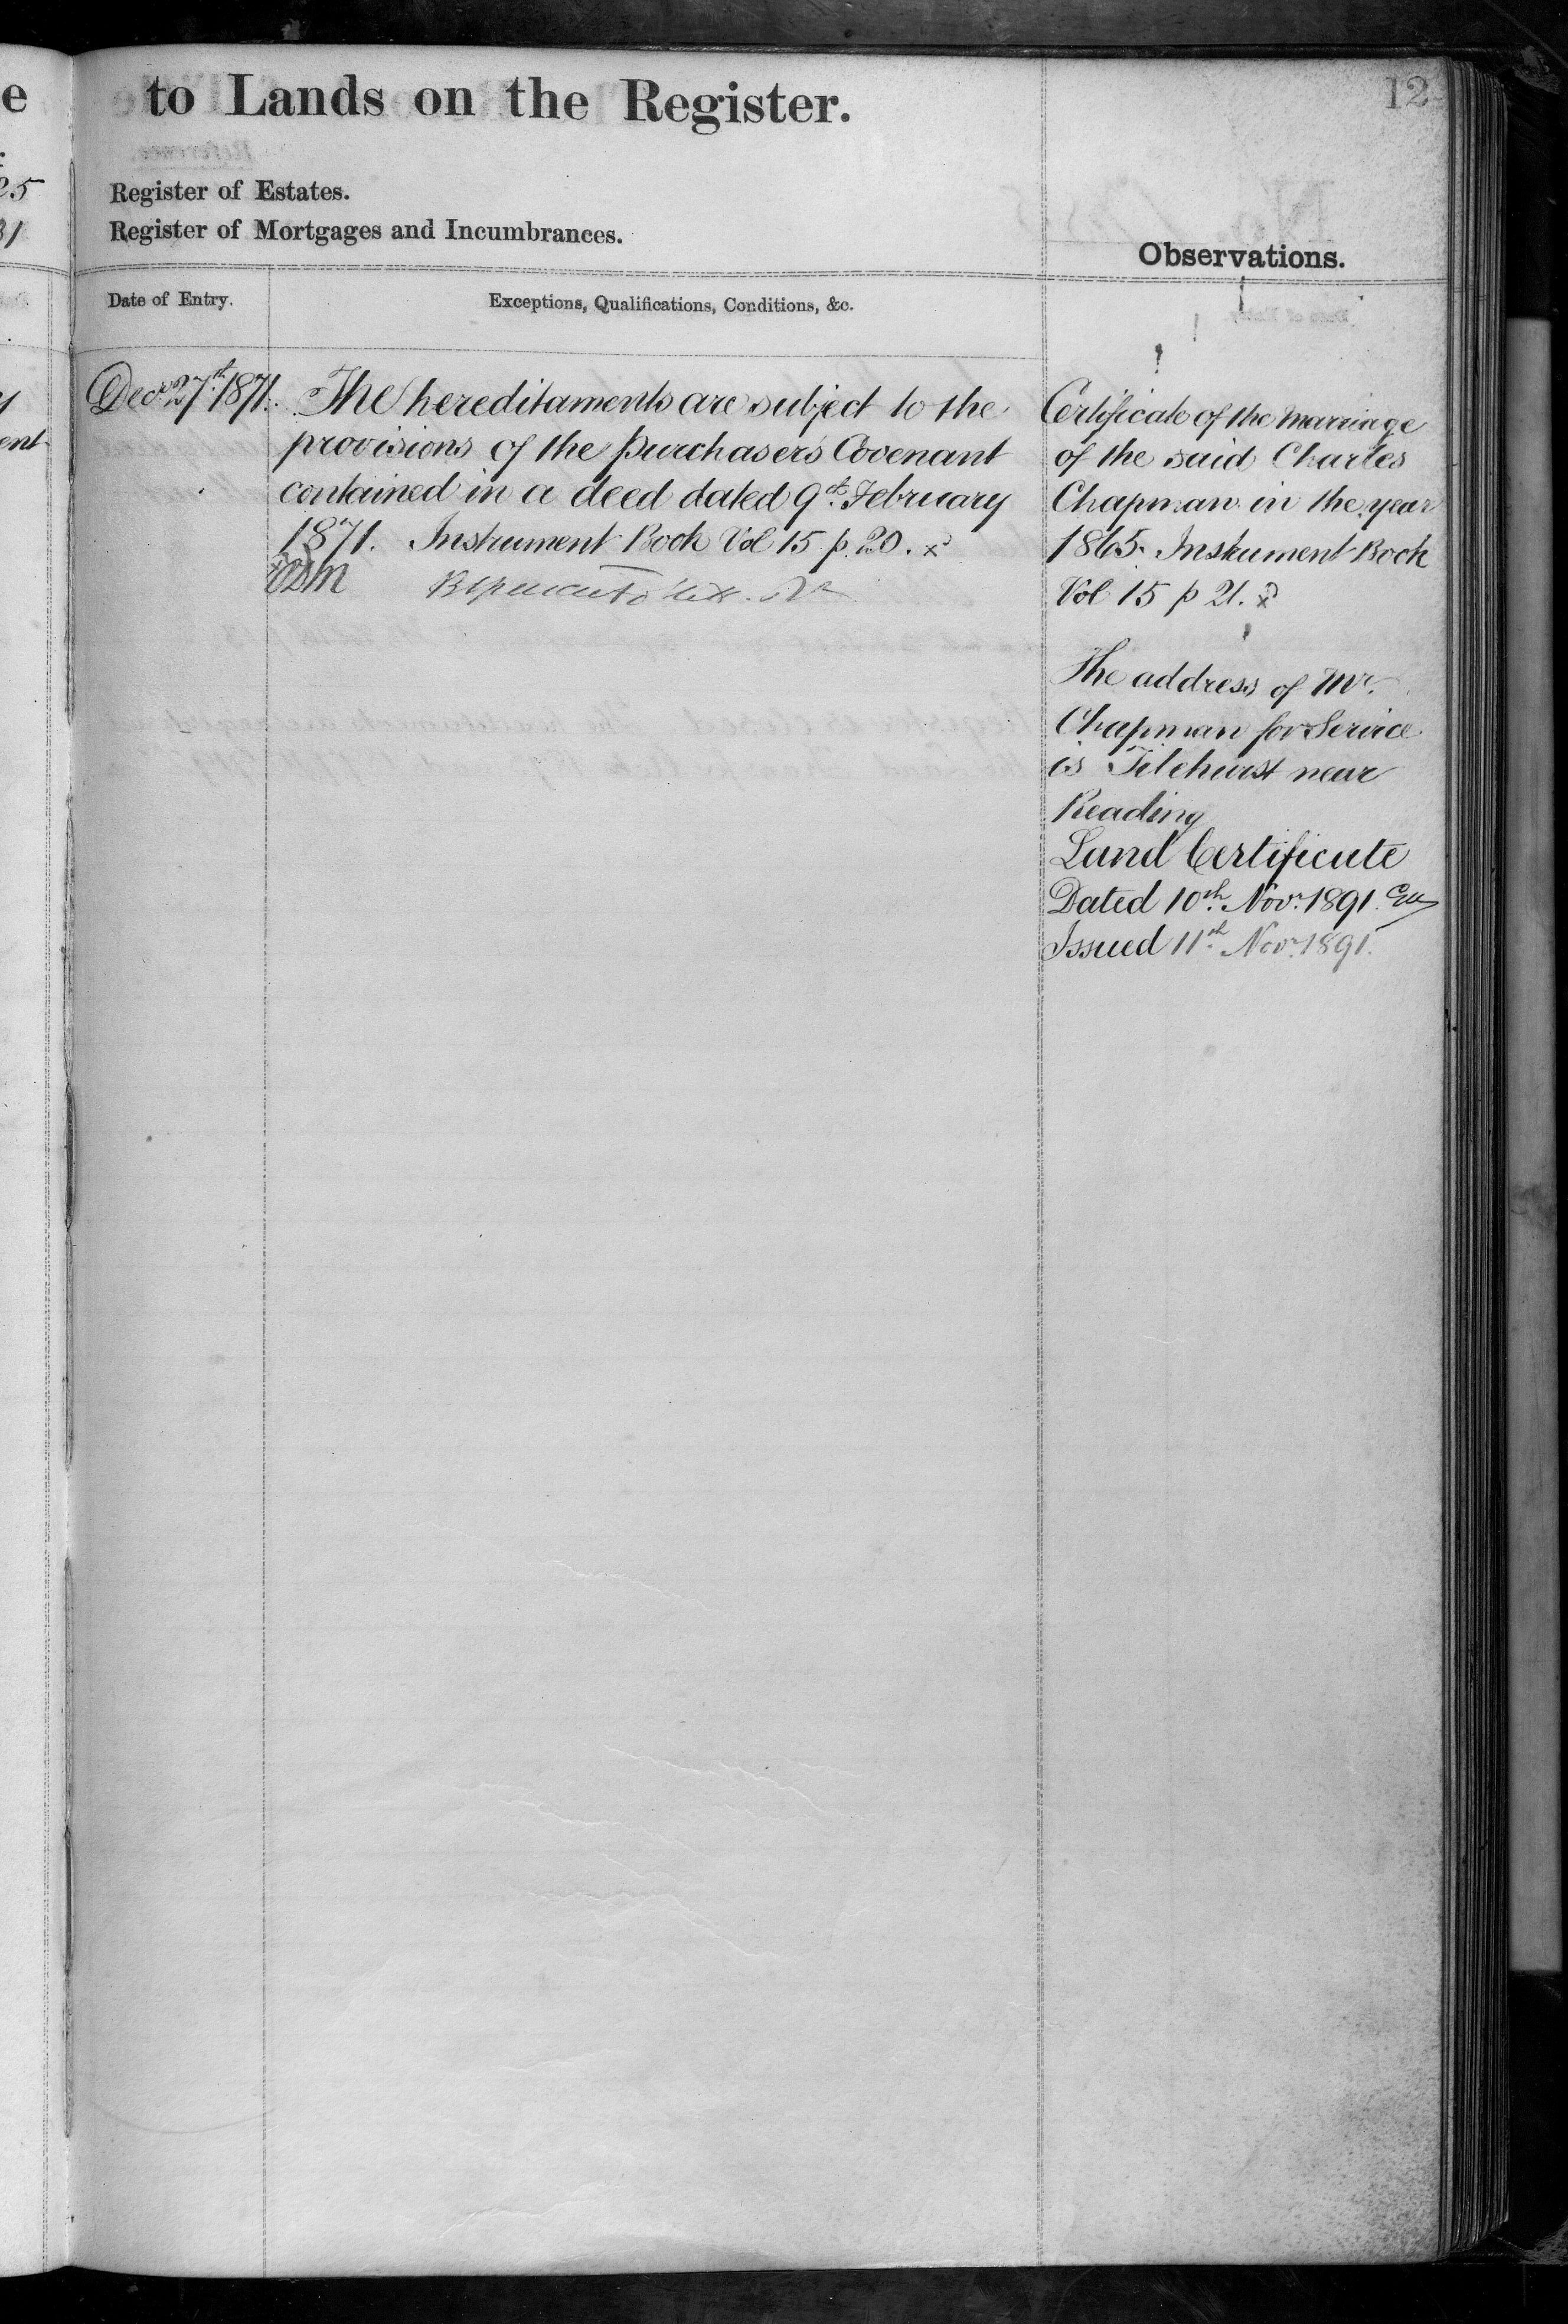 12
to Lands on the Register.
Register of Estates.
Register of Mortgages and Incumbrances.
Observations.
Date of Entry.
Exceptions, Qualifications, Conditions, &c.
Decr 27th 1871.
The hereditaments are subject to the
provisions of the purchasers Covenant
contained in a deed dated 9th February
1871. Instrument Book Vol 15 p. 20. x
Certificate of the Marriage
of the said Charles
Chapman in the year
1865. Instrument Book
Vol 15 p 21. x
The address of Mr.
Chapman for Service
is Tilehurst near
Reading
Land Certificate
Dated 10th Novr. 1891.
Issued 11th Novr. 1891.